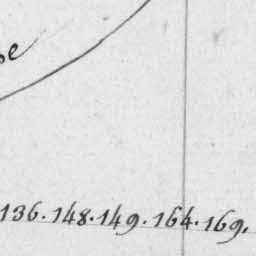 136. 148. 149. 164. 169.